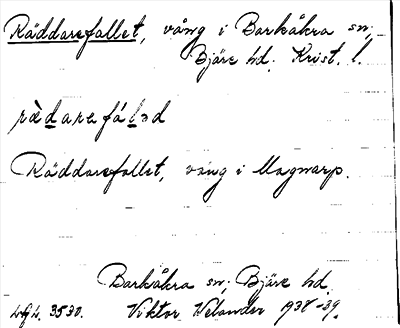 Räddarefallet, vång i Barkåkra sn;
Bjäre hd. Krist. l.
rädarefáləd
Räddarefallet, vång i Magnarp.
Barkåkra sn; Bjäre hd.
3530. Viktor Welander 1938-39.